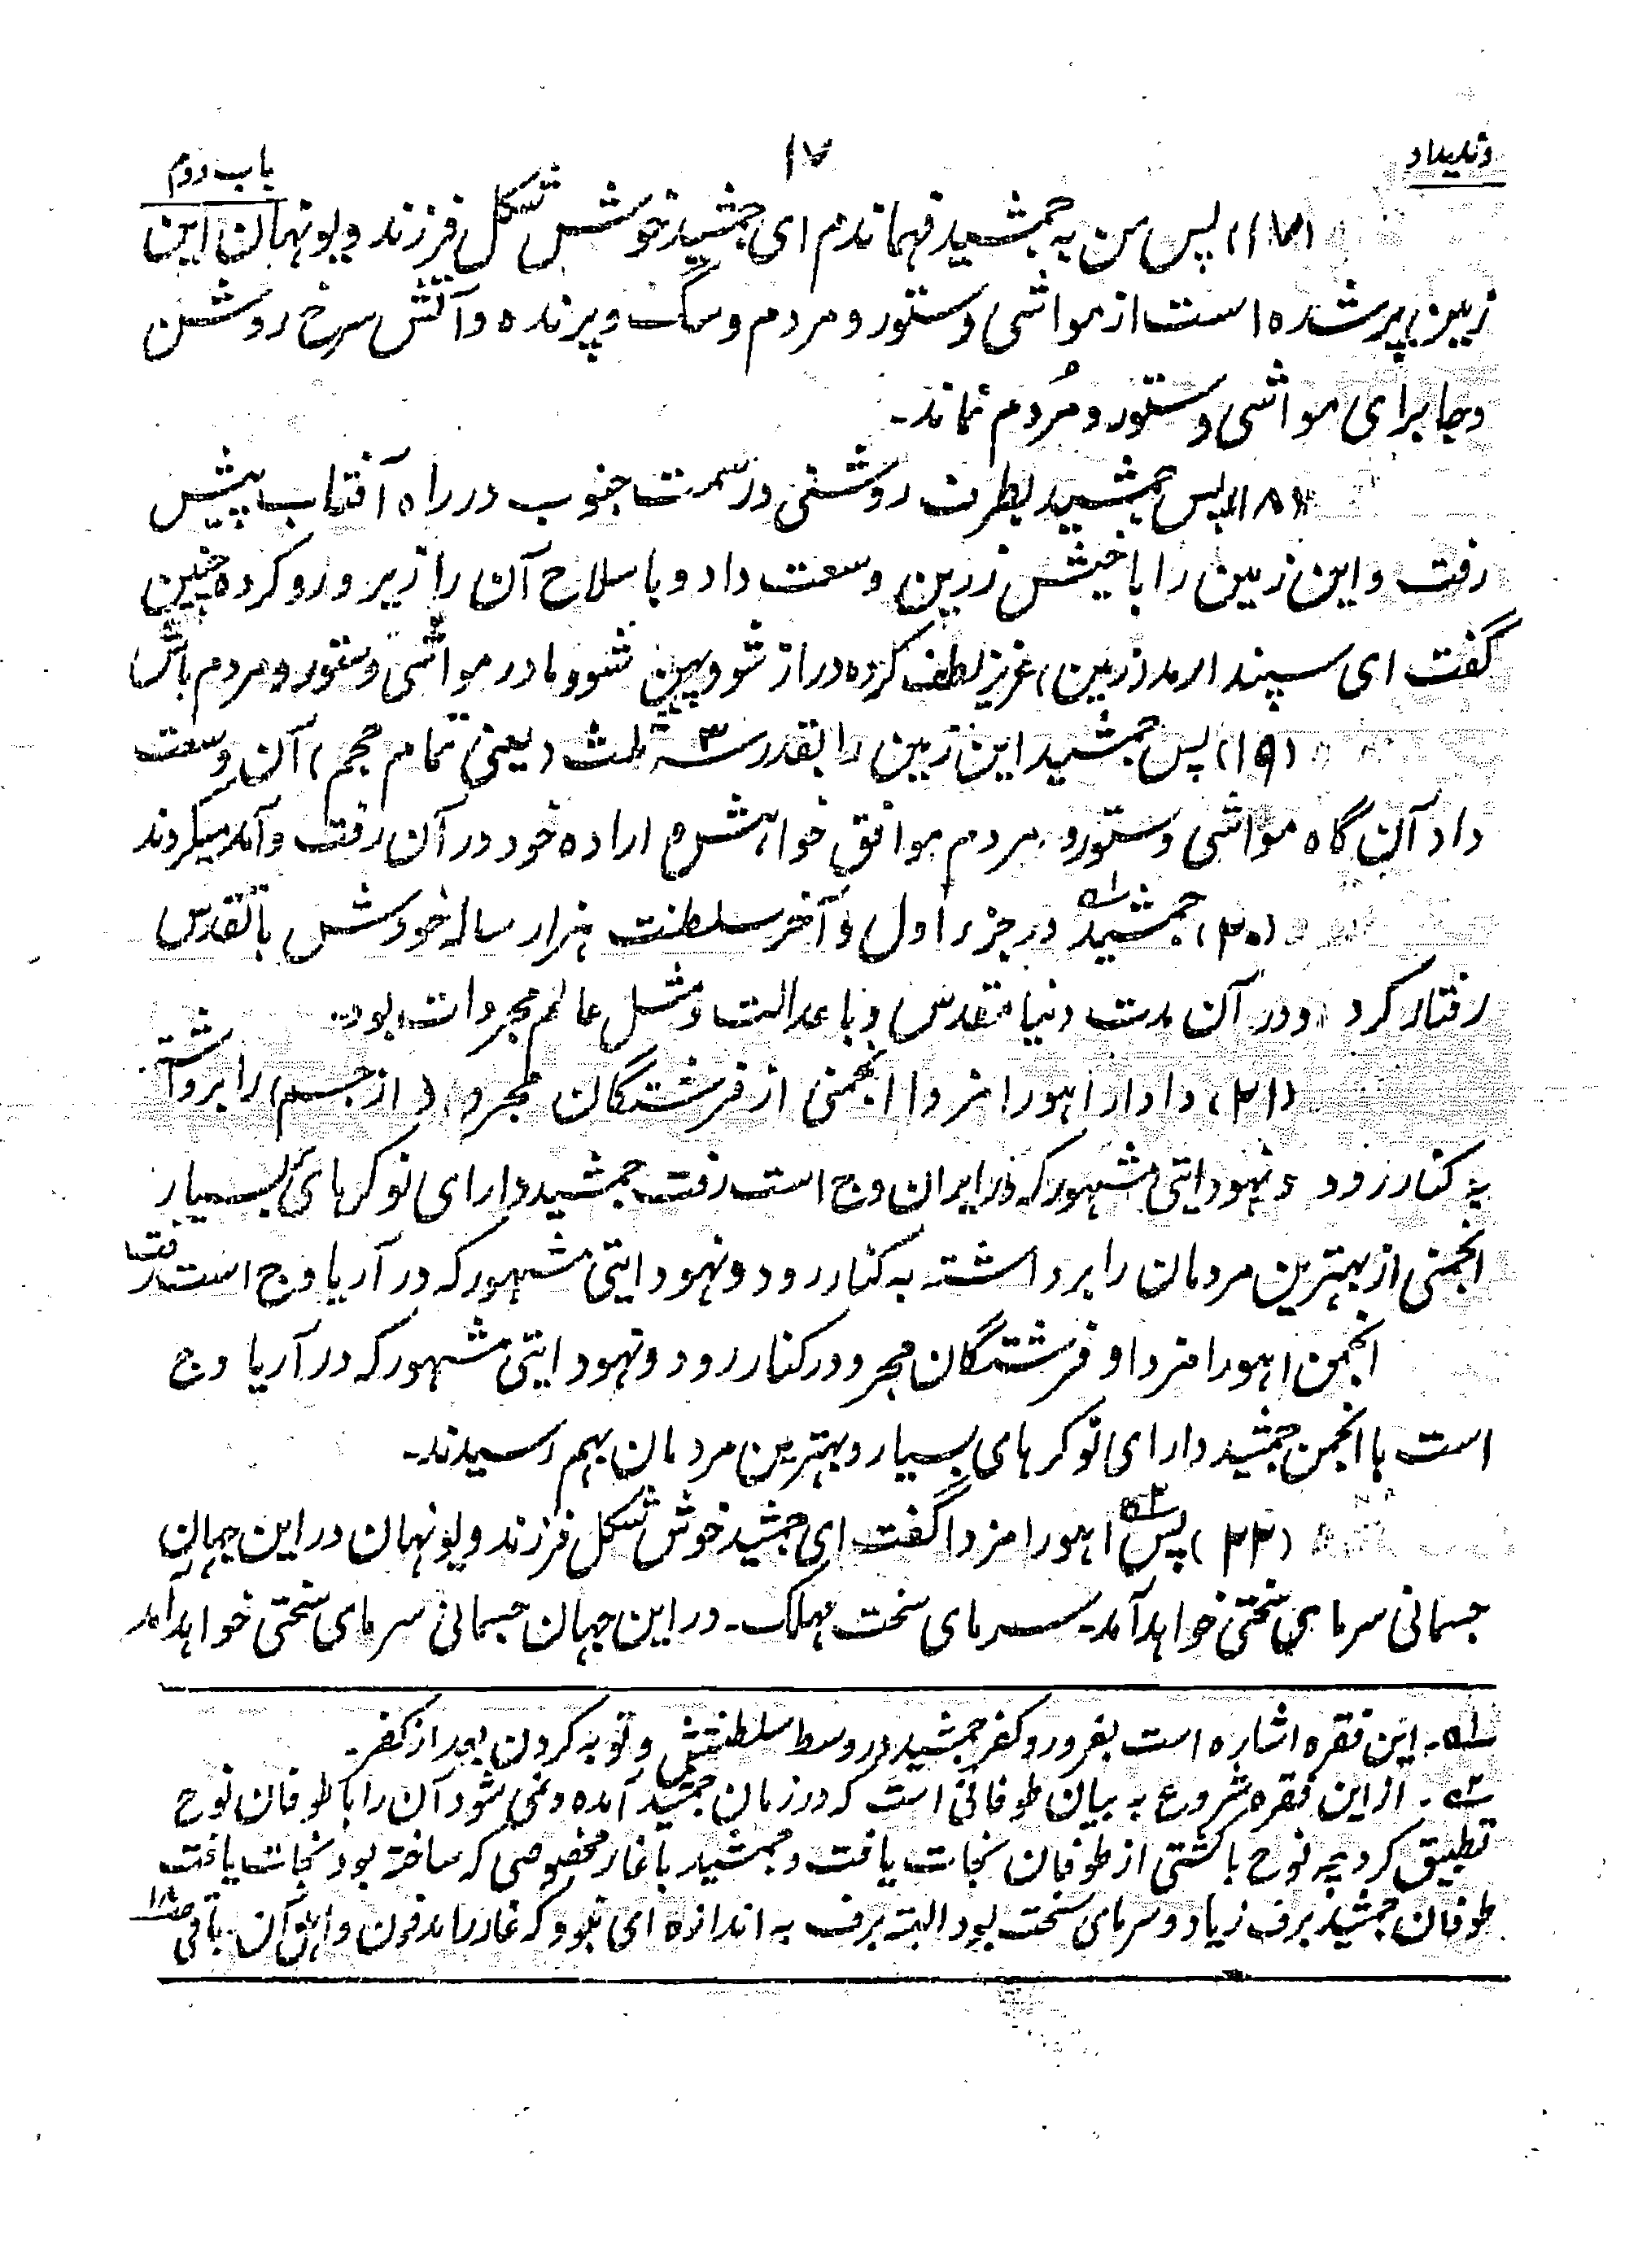 وندیداد
۱۷
باب دوم
(۱۷) پس من به جمشید فهماندم ای جمشید خوش شکل فرزند ویونهان این
زمین پر شده است از مواشی و ستور و مردم و سگ و پرنده و آتش سرخ روشن
و جا برای مواشی و ستور و مُردم نماند۔
(۱۸) پس جمشید بطرف روشنی در سمت جنوب در راه آفتاب پیش
رفت و این زمین را با خیش زرین وسعت داد و با سلاح آن را زیر و رو کرده چنین
گفت ای سپندارمد (زمین) عزیز لطف کرده دراز شو و پهن شو و مادر مواشی و ستور و مردم باش
(۱۹) پس جمشید این زمین را بقدر سه ۳ ثلث (یعنی تمام حجم) آن وسعت
داد آن گاه مواشی و ستور و مردم موافق خواهش و اراده خود در آن رفت و آمد میکردند
(۲۰) جمشید ؂۱ در جزء اول و آخر سلطنت هزار ساله خودش با تقدس
رفتار کرد و در آن مدت دنیا مقدس و با عدالت و مثل عالم مجردات بود۔
(۲۱) دادار اهورا مزدا انجمنی از فرشتگان مجرد (از جسم) را برداشته
به کنار رود ونهودایتی مشهور که در ایران وج است رفت جمشید دارای نوکرهای بسیار
انجمنی از بهترین مردمان را برداشته به کنار رود ونهودایتی مشهور که در آریا وج است رفت
انجمن اهورا مزدا و فرشتگان مجرد در کنار رود ونهودایتی مشهور که در آریا وج
است با انجمن جمشید دارای نوکرهای بسیار و بهترین مردمان بهم رسیدند۔
(۲۲) پس ؂۲ اهورا مزدا گفت ای جمشید خوش شکل فرزند ویونهان در این جهان
جسمانی سرمای سختی خواهد آمد۔ سرمای سخت مهلک۔ در این جهان جسمانی سرمای سختی خواهد آمد
؂۱۔ این فقره اشاره است بغرور و کفر جمشید در وسط سلطنتش و توبه کردن بعد از کفر۔
؂۲۔ از این فقره شروع به بیان طوفانی است که در زمان جمشید آمده و نمی شود آن را با طوفان نوح
تطبیق کرد چه نوح با کشتی از طوفان نجات یافت و جمشید با غار مخصوصی که ساخته بود نجات یافت
طوفان جمشید برف زیاد و سرمای سخت بود البته برف به اندازه ای نبود که غار را مدفون و اهل آن۔ باقی صـ ۱۸